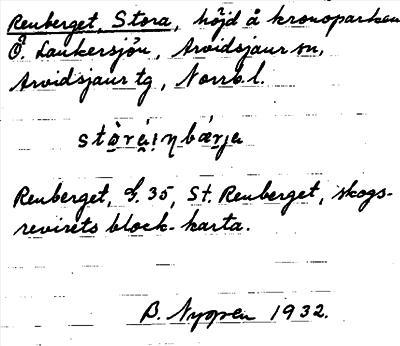 Renberget, Stora, höjd å kronoparken
Ö. Laukersjön, Arvidsjaur sn,
Arvidsjaur tg, Norrb. l.
Renberget, L. 35, St. Renberget, skogs-
revirets block-karta.
B. Nyopen 1932.